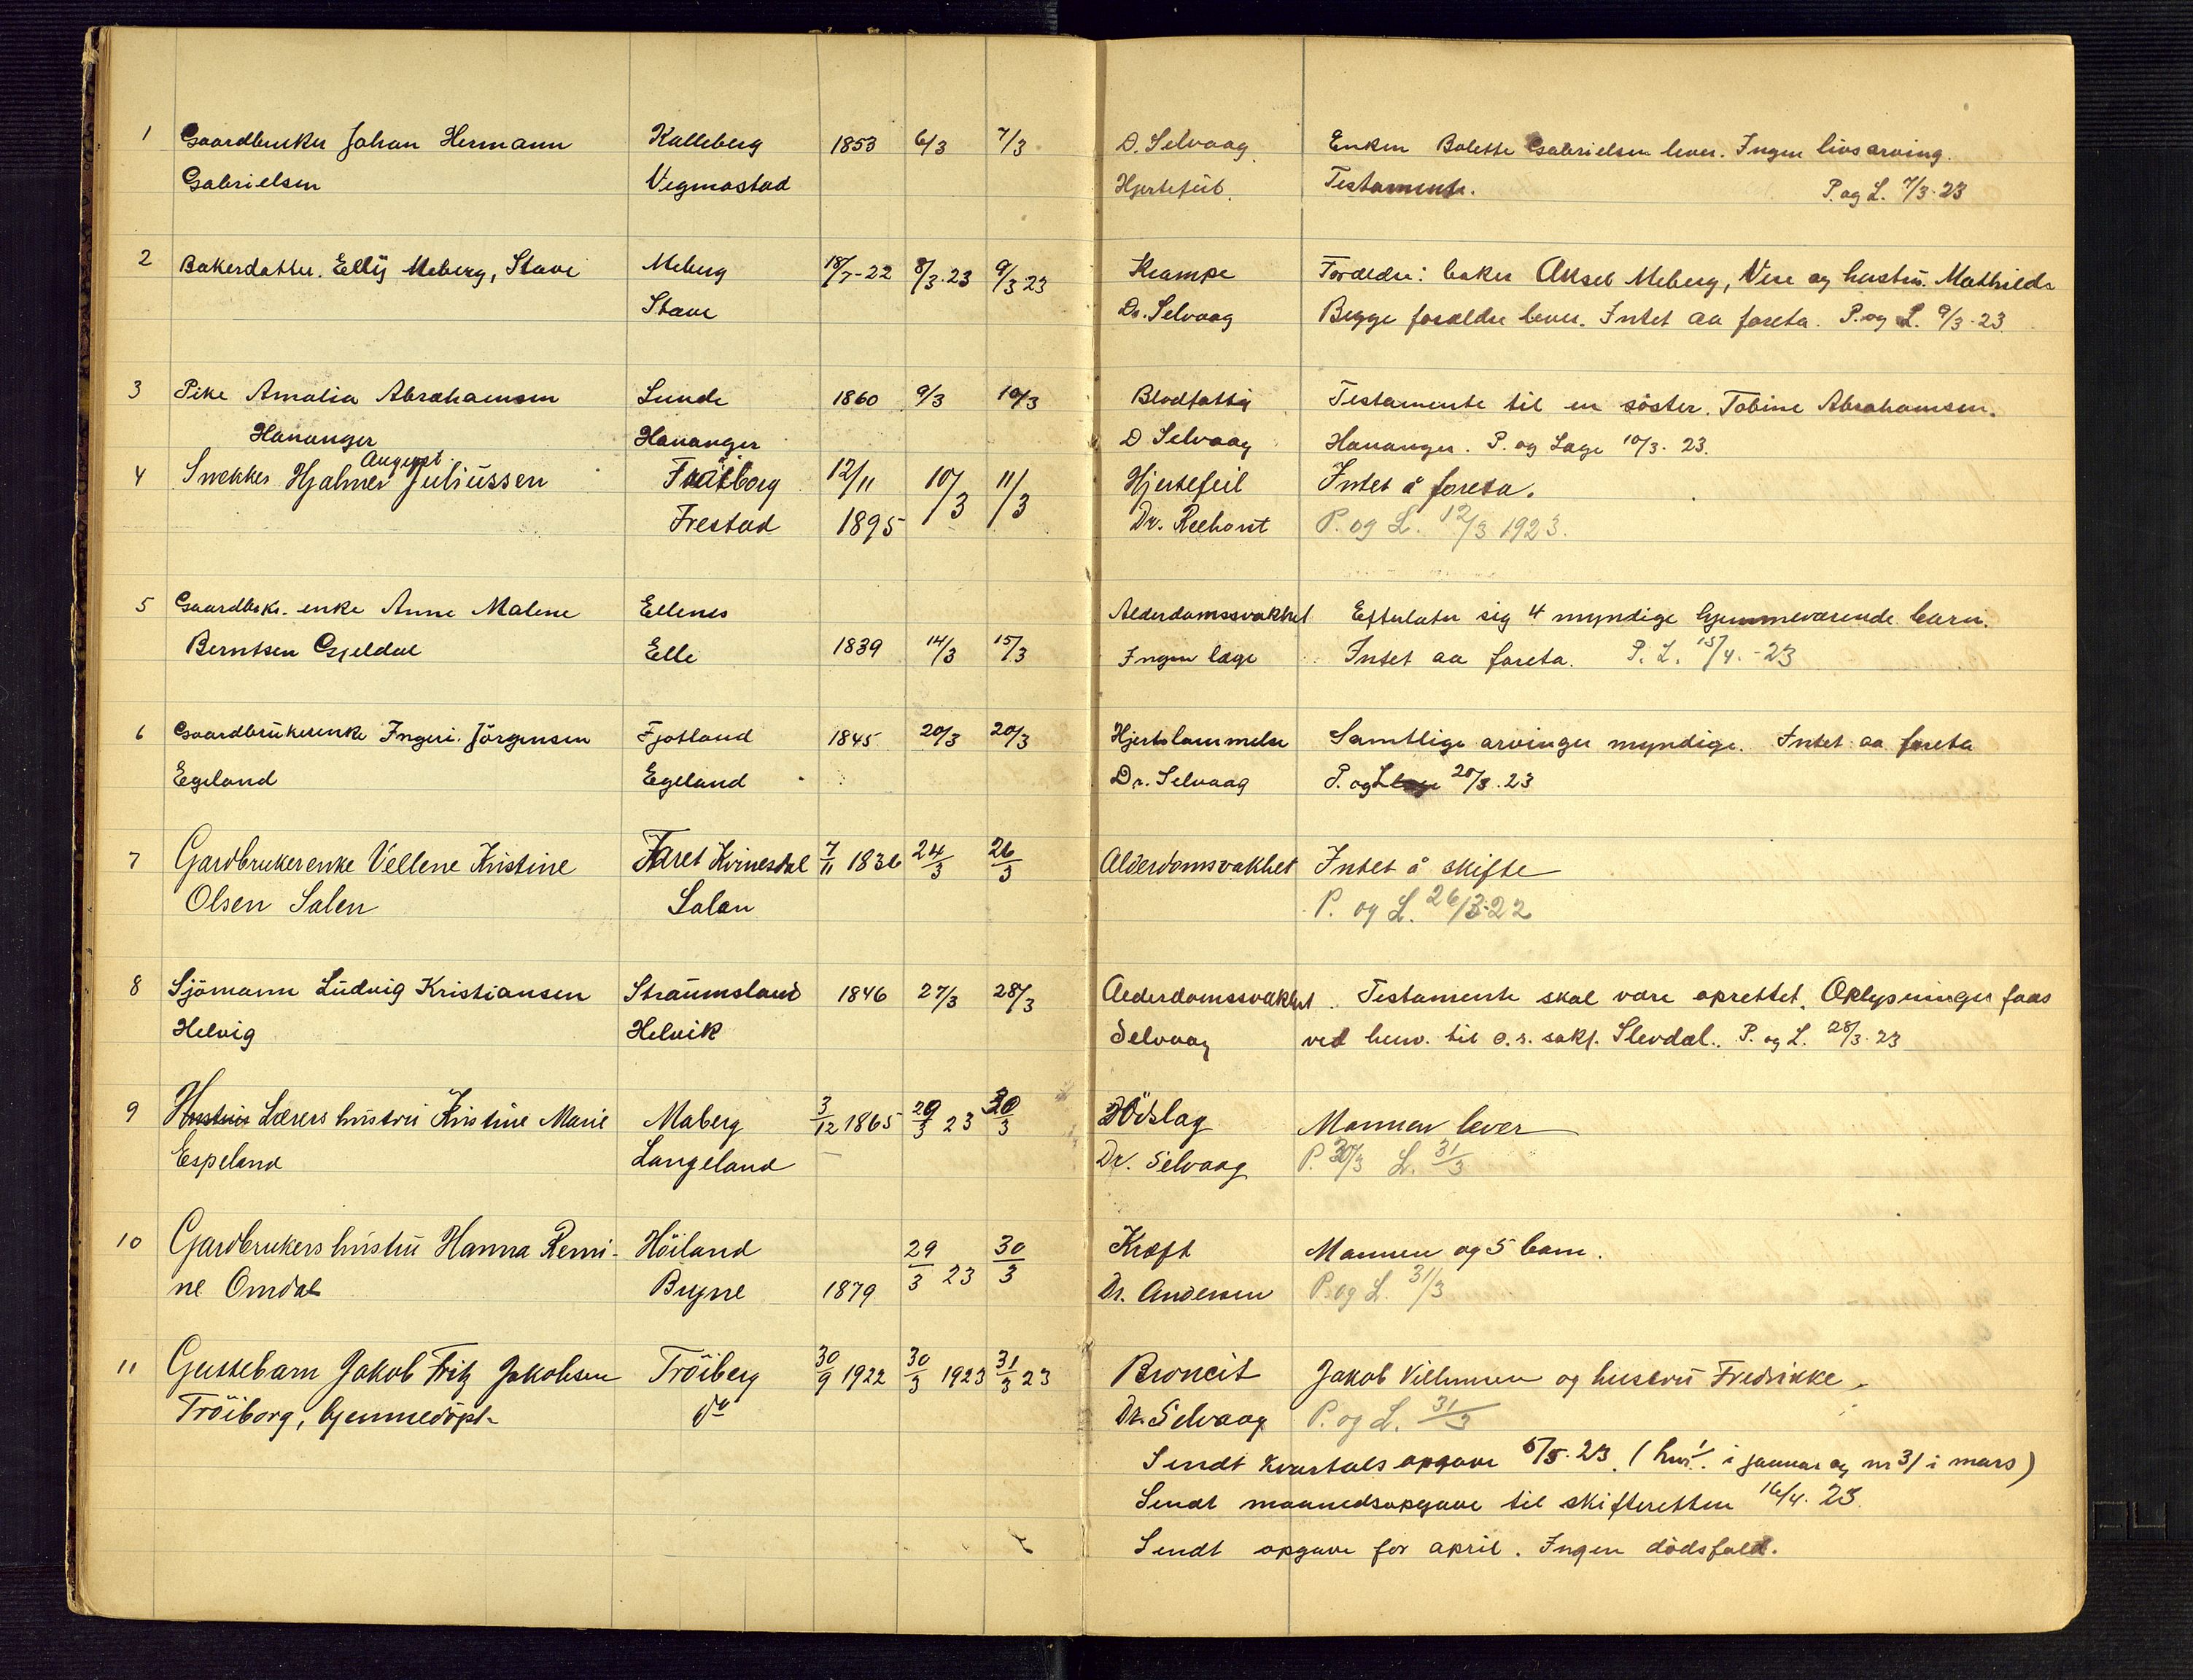 1 Gaardbruker Johan Hermann Kalleberg 1853 6/3 7/3 D. Selvaag Enken Bolette Gabrielsen lever. Ingen livsarving.
Gabrielsen Vegmostad Hjertefeil. Testamente. P. og L. 7/3-23
2 Bakerdatter. Elly Meberg, Stave Meberg 18/7-22 8/3.23 9/3 23 Krampe Forældre: baker Aksel Meberg, Vese og hustru Mathilde
Stave Dr. Selvaag Begge forældre lever. Intet aa foreta. P. og L. 9/3-23
3 Pike Amalia Abrahamsen Lunde 1860 9/3 10/3 Blodfattig Testamente til en söster. Tobine Abrahamsen.
Hananger Hananger D Selvaag Hananger. P. og Lage 10/3. 23.
August
4 Snekker Hjalmer Juliussen 12/11 10/3 11/3 Hjertefeil Intet å foreta.
Frestad 1895 Dr. P. og L. 12/3 1923.
5 Gaardbrks. enke Anne Malene Ellenes Alderdomssvakhet Efterlater sig 4 myndige hjemmeværende barn.
Berntsen Gjeldal Elle 1839 14/3 15/3 Ingen læge Intet aa foreta. P. L. 15/4.-23
6 Gaardbrukerenke Ingeri. Jörgensen Fjotland 1845 20/3 20/3 Hjertelammelse Samtlige arvinger myndige. Intet aa foreta
Egeland Egeland Dr. Selvaag P. og L 20/3.23
7 Gardbrukerenke Vellene Kristine Faret Kvinesdal 7/11 1836 24/3 26/3 Alderdomsvakhet Intet å skifte
Olsen Salen Salan P. og L. 26/3-22
8 Sjömann Ludvig Kristiansen Straumsland 1846 27/3 28/3 Alderdomssvakhet. Testamente skal være oprettet. Oplysninger faas
Helvig Helvik Selvaag ved henv. til o.r. sakf. Slevdal. P. og L. 28/3.23
9 Hustru Lærers hustru Kristine Marie Maberg 3/12 1865 29/3 23 30/3 Hödslag Mannen lever
Espeland Langeland Dr. Selvaag P. 30/3 L. 31/3
10 Gardbrukers hustru Hanna Remi- Höiland 29/3 23 30/3 Kræft Mannen og 5 barn.
ne Omdal Bryne 1879 Dr. Andersen P. og L. 31/3
11 Guttebarn Jakob Fritz Jakobsen Tröiberg 30/9 1922 30/3 1923 31/3 23 Broncit Jakob Vilhumsen og hustru Fredrikke.
Tröiborg, hjemmedöpt do Dr. Selvaag P. og L. 31/3
Sendt kvartalsopgave 5/5.23. (hvr. 1 i januar og nr 31 i mars)
Sendt maanedsopgave til skifteretten 16/4. 23.
Sendt opgave for april. Ingen dödsfald.